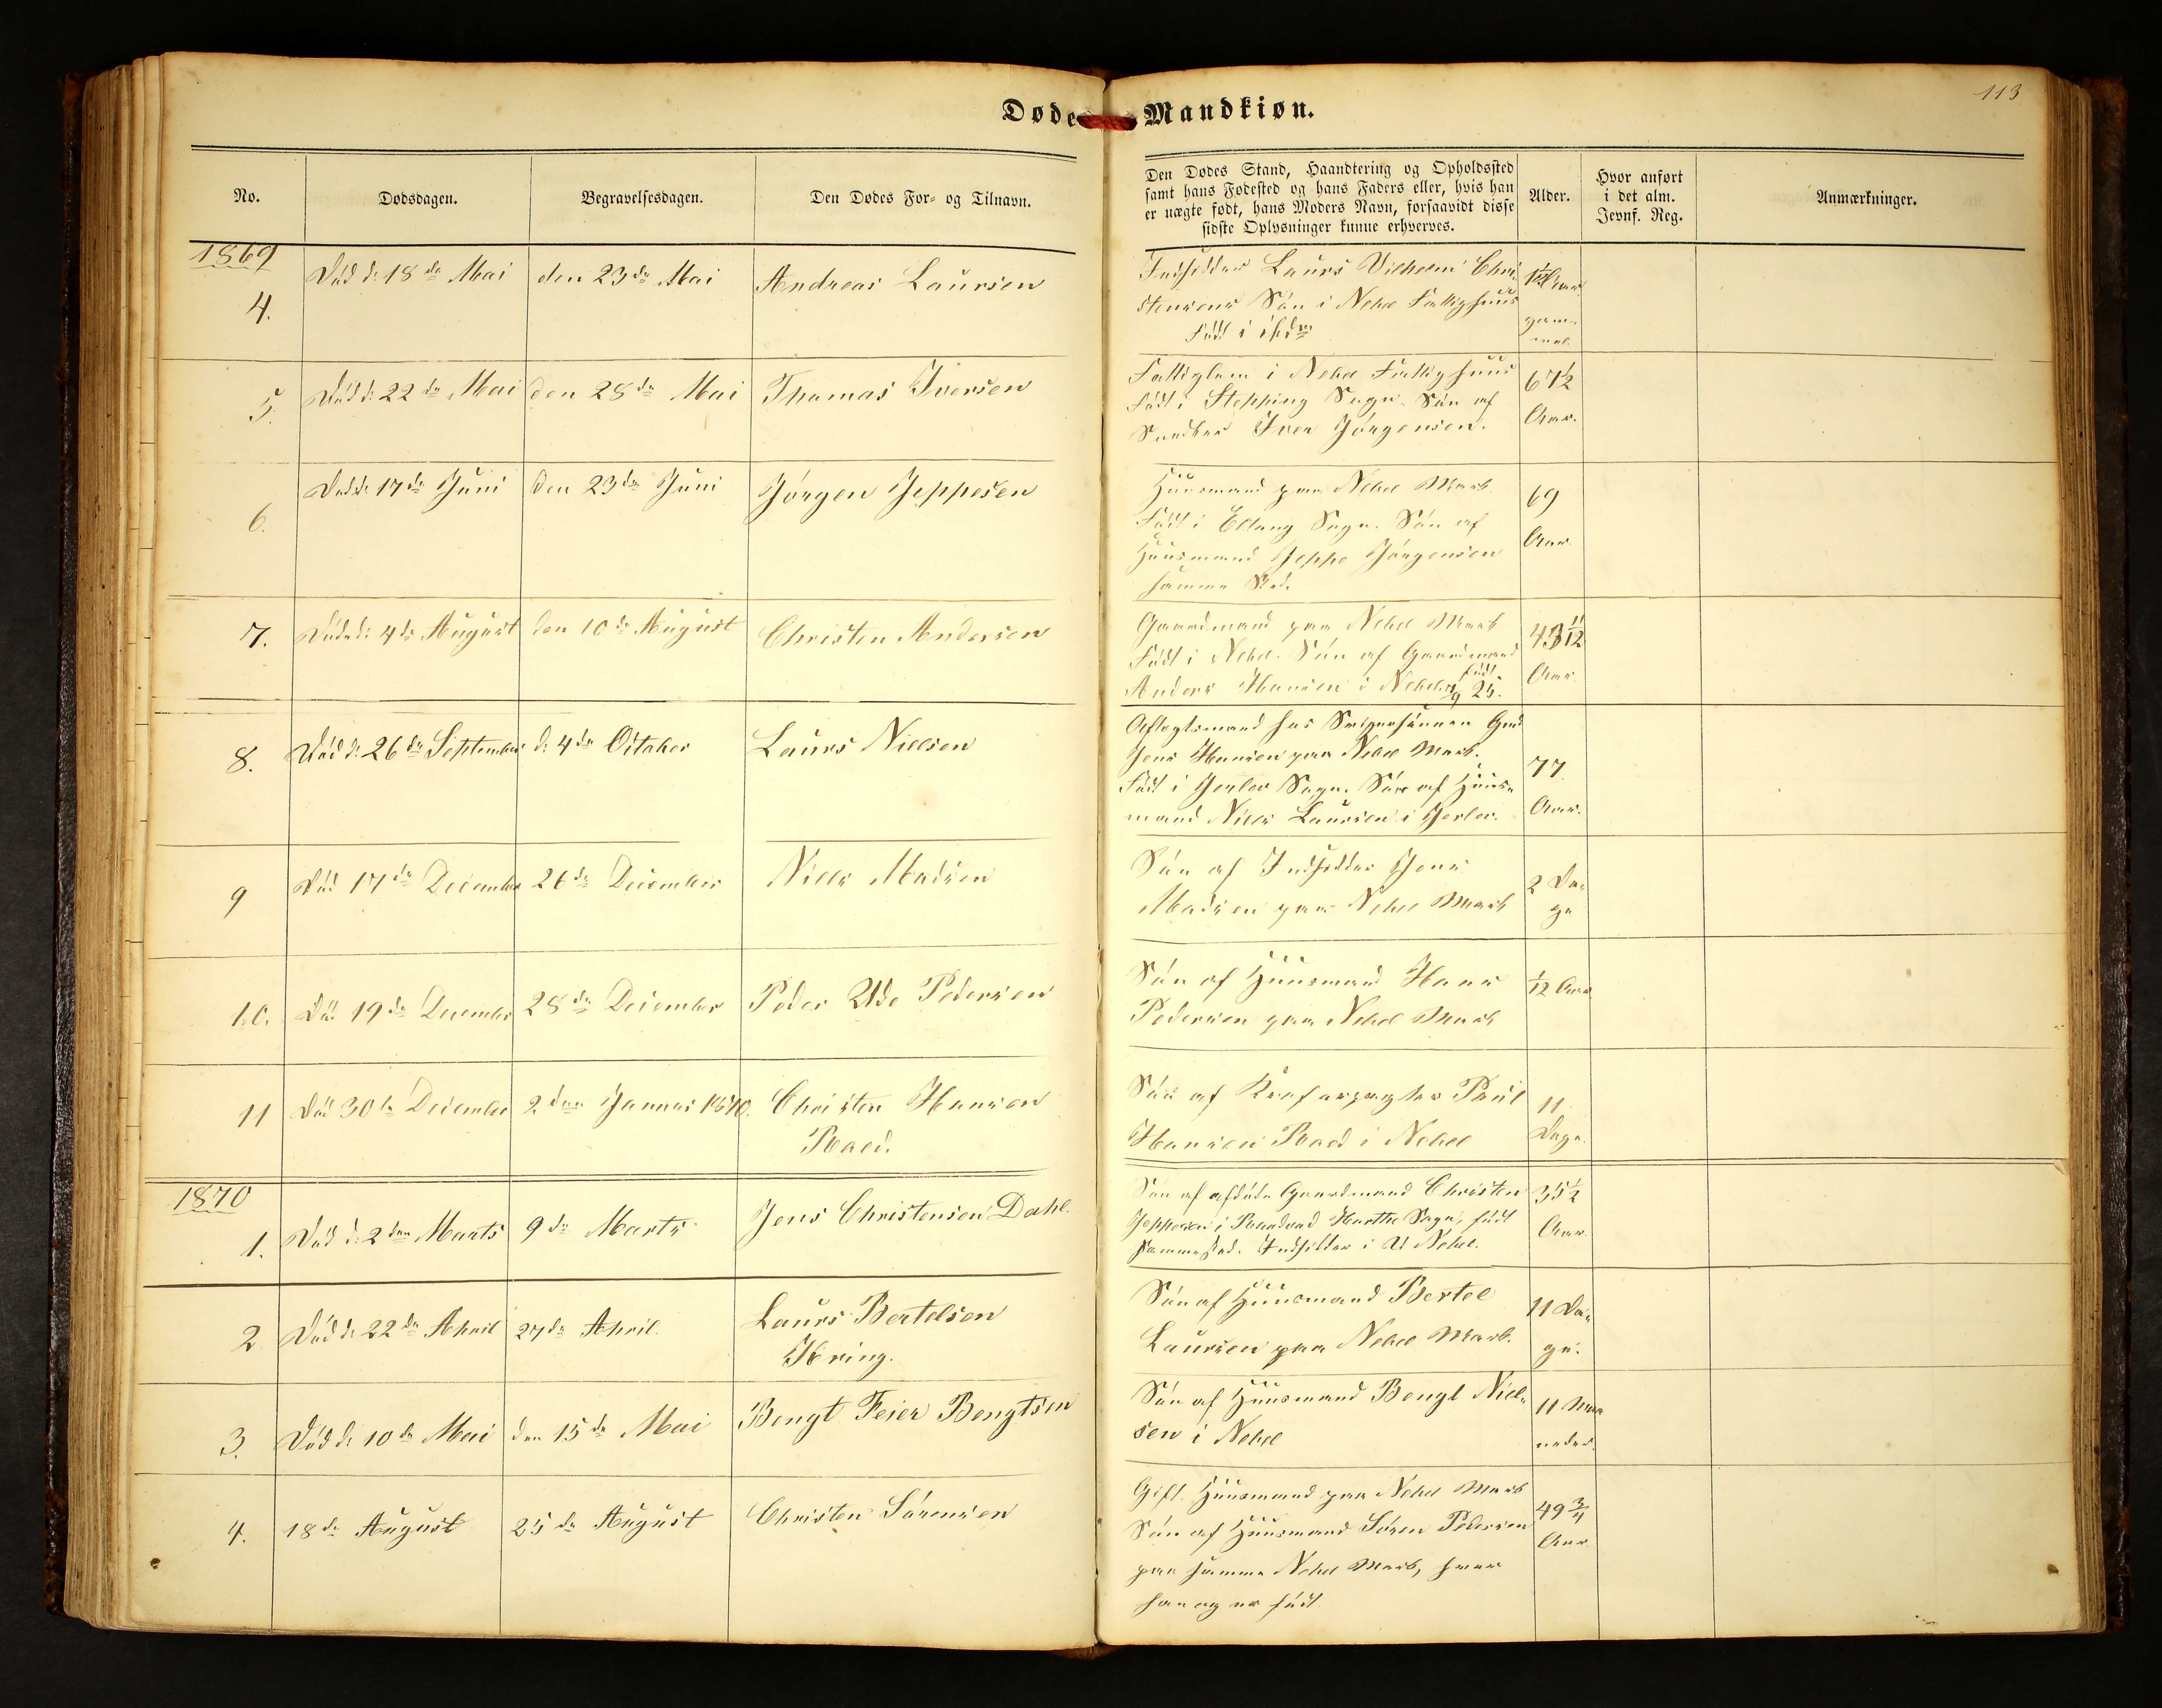 Døde Mandkiøn.
113
No.
Dødsdagen.
Begravelsesdagen.
Den Dødes For- og Tilnavn.
Den Dødes Stand, Haandtering og Opholdssted
samt hans Fødested og hans Faders eller, hvis han
er uægte født, hans Moders Navn, forsaavidt disse
sidste Oplysninger kunne erhverves.
Alder.
Hvor anført
i det alm.
Jevnf. Reg.
Anmærkninger.
1869
4.
Død d: 18de Mai
den 23de Mai
Andreas Laursen
Indsidder Laurs Vilhelm Chri-
stensens Søn i Nebel Fattighuus
Født i
Aar
gam-
mel.
5.
Død d: 22de Mai
den 28de Mai
Thomas Iversen
Fattiglem i Nebel Fattighuus
Født i Stepping Sogn. Søn af
Iver Jørgensen.
67½
Aar.
6.
Død d: 17de Juni
den 23de Juni
Jørgen Jeppesen
Huusmand paa Nebel Mark
Født i Sogn. Søn af
Huusmand Jeppe Jørgensen
samme Sted.
69
Aar.
7.
Død d: 4de August
den 10de August
Christen Andersen
Gaardmand paa Nebel Mark
Født i Nebel. Søn af Gaardmand
Anders Hansen i Nebel
født 25.
43 11/12
Aar.
8.
Død d: 26de September
d: 4de October
Laurs Nielsen
Aftægtsmand hos Svigersønnen Gmd
Jens Hansen paa Nebel Mark.
Født i Jerlev Sogn. Søn af Huus-
mand Niels Laursen i Jerlev.
77
Aar.
9
Død 17de December
26de December
Niels Madsen
Søn af Indsidder Jens
Madsen paa Nebel Mark
2 Da-
ge
10.
Død 19de December
28de December
Peder Pedersen
Søn af Huusmand Hans
Pedersen paa Nebel Mark
1/12 Aar
11
Død 30te December
2den Januar 1870.
Christen Hansen
Raed.
Søn af Paul
Hansen Raed i Nebel
11
Dage.
1870
1.
Død d: 2den Marts
9de Marts
Jens Christensen Dahl.
Søn af afdøde Gaardmand Christen
Jeppesen i Harthe Sogn, født
sammested. Indsidder i Nebel.
35½
Aar.
2
Død d: 22de April
27de April.
Laurs Bertelsen
Søn af Huusmand Bertel
Laursen paa Nebel Mark.
11 Da-
ge.
3.
Død d: 10de Mai
den 15de Mai
Bengt Feier Bengtsen
Søn af Huusmand Bengt Niel-
sen i Nebel
11 Maa
neder.
4.
18de August
25de August
Christen Sørensen
Gift. Huusmand paa Nebel Mark
Søn af Huusmand Søren Pedersen
paa samme Nebel Mark, hvor
han og er født.
49 3/4
Aar.